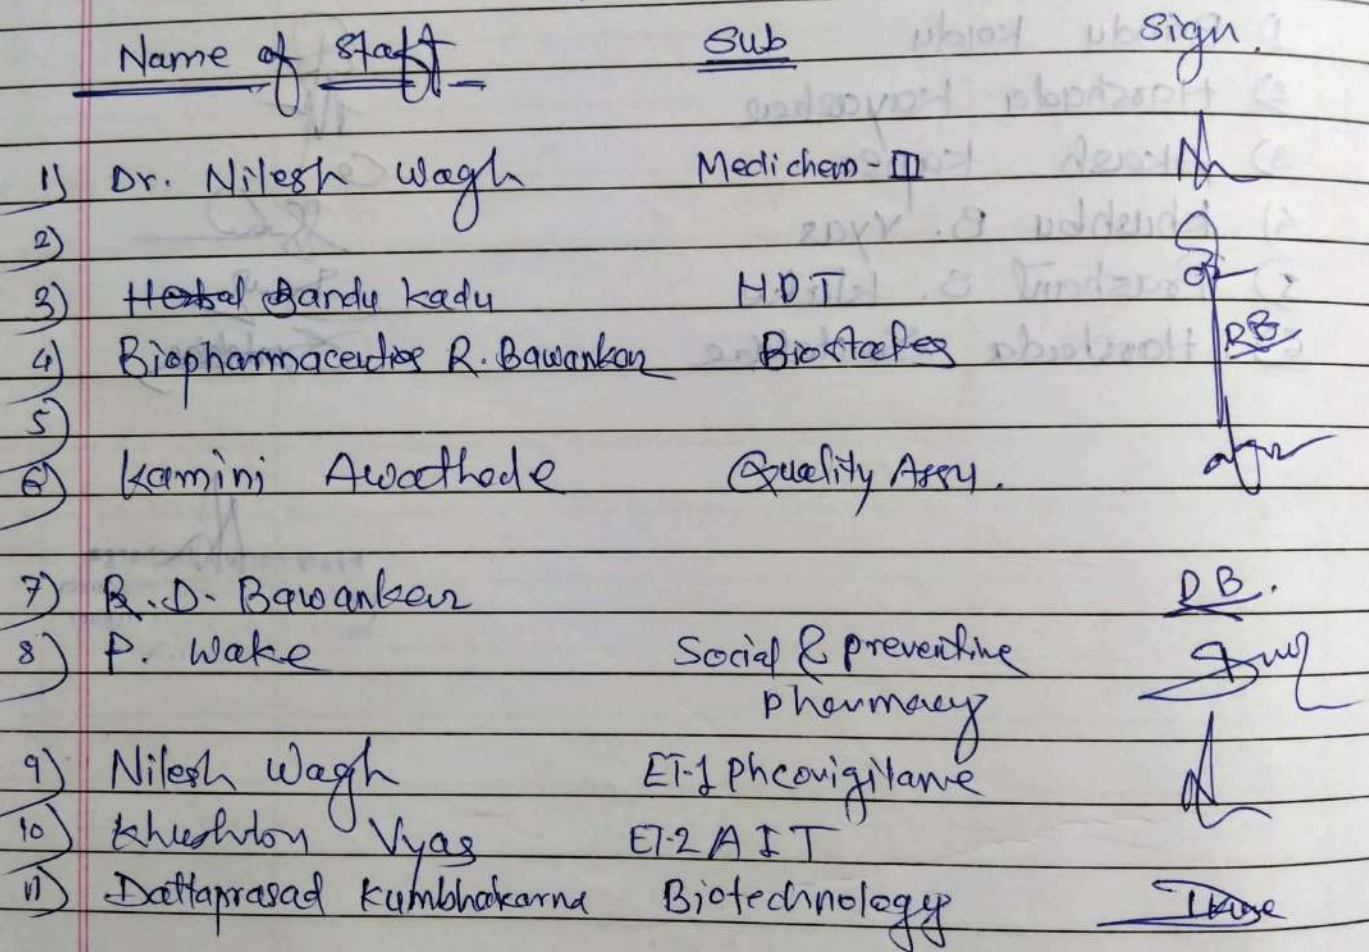 Name of Staff Sub Sign.
1) Dr. Nilesh Wagh Medichem-III
2)
3) Herbal Bandu Kadu H.D.T
4) Biopharmaceutics R. Bawankar RB
5)
6) Kamini Awathode Quality Assu.
7) R.D. Bawankar DB.
8) P. Wake Social & preventive
pharmacy
9) Nilesh Wagh ET-1
10) Vyas ET-2 AIT
11) Dattaprasad Kumbhakarna Biotechnology